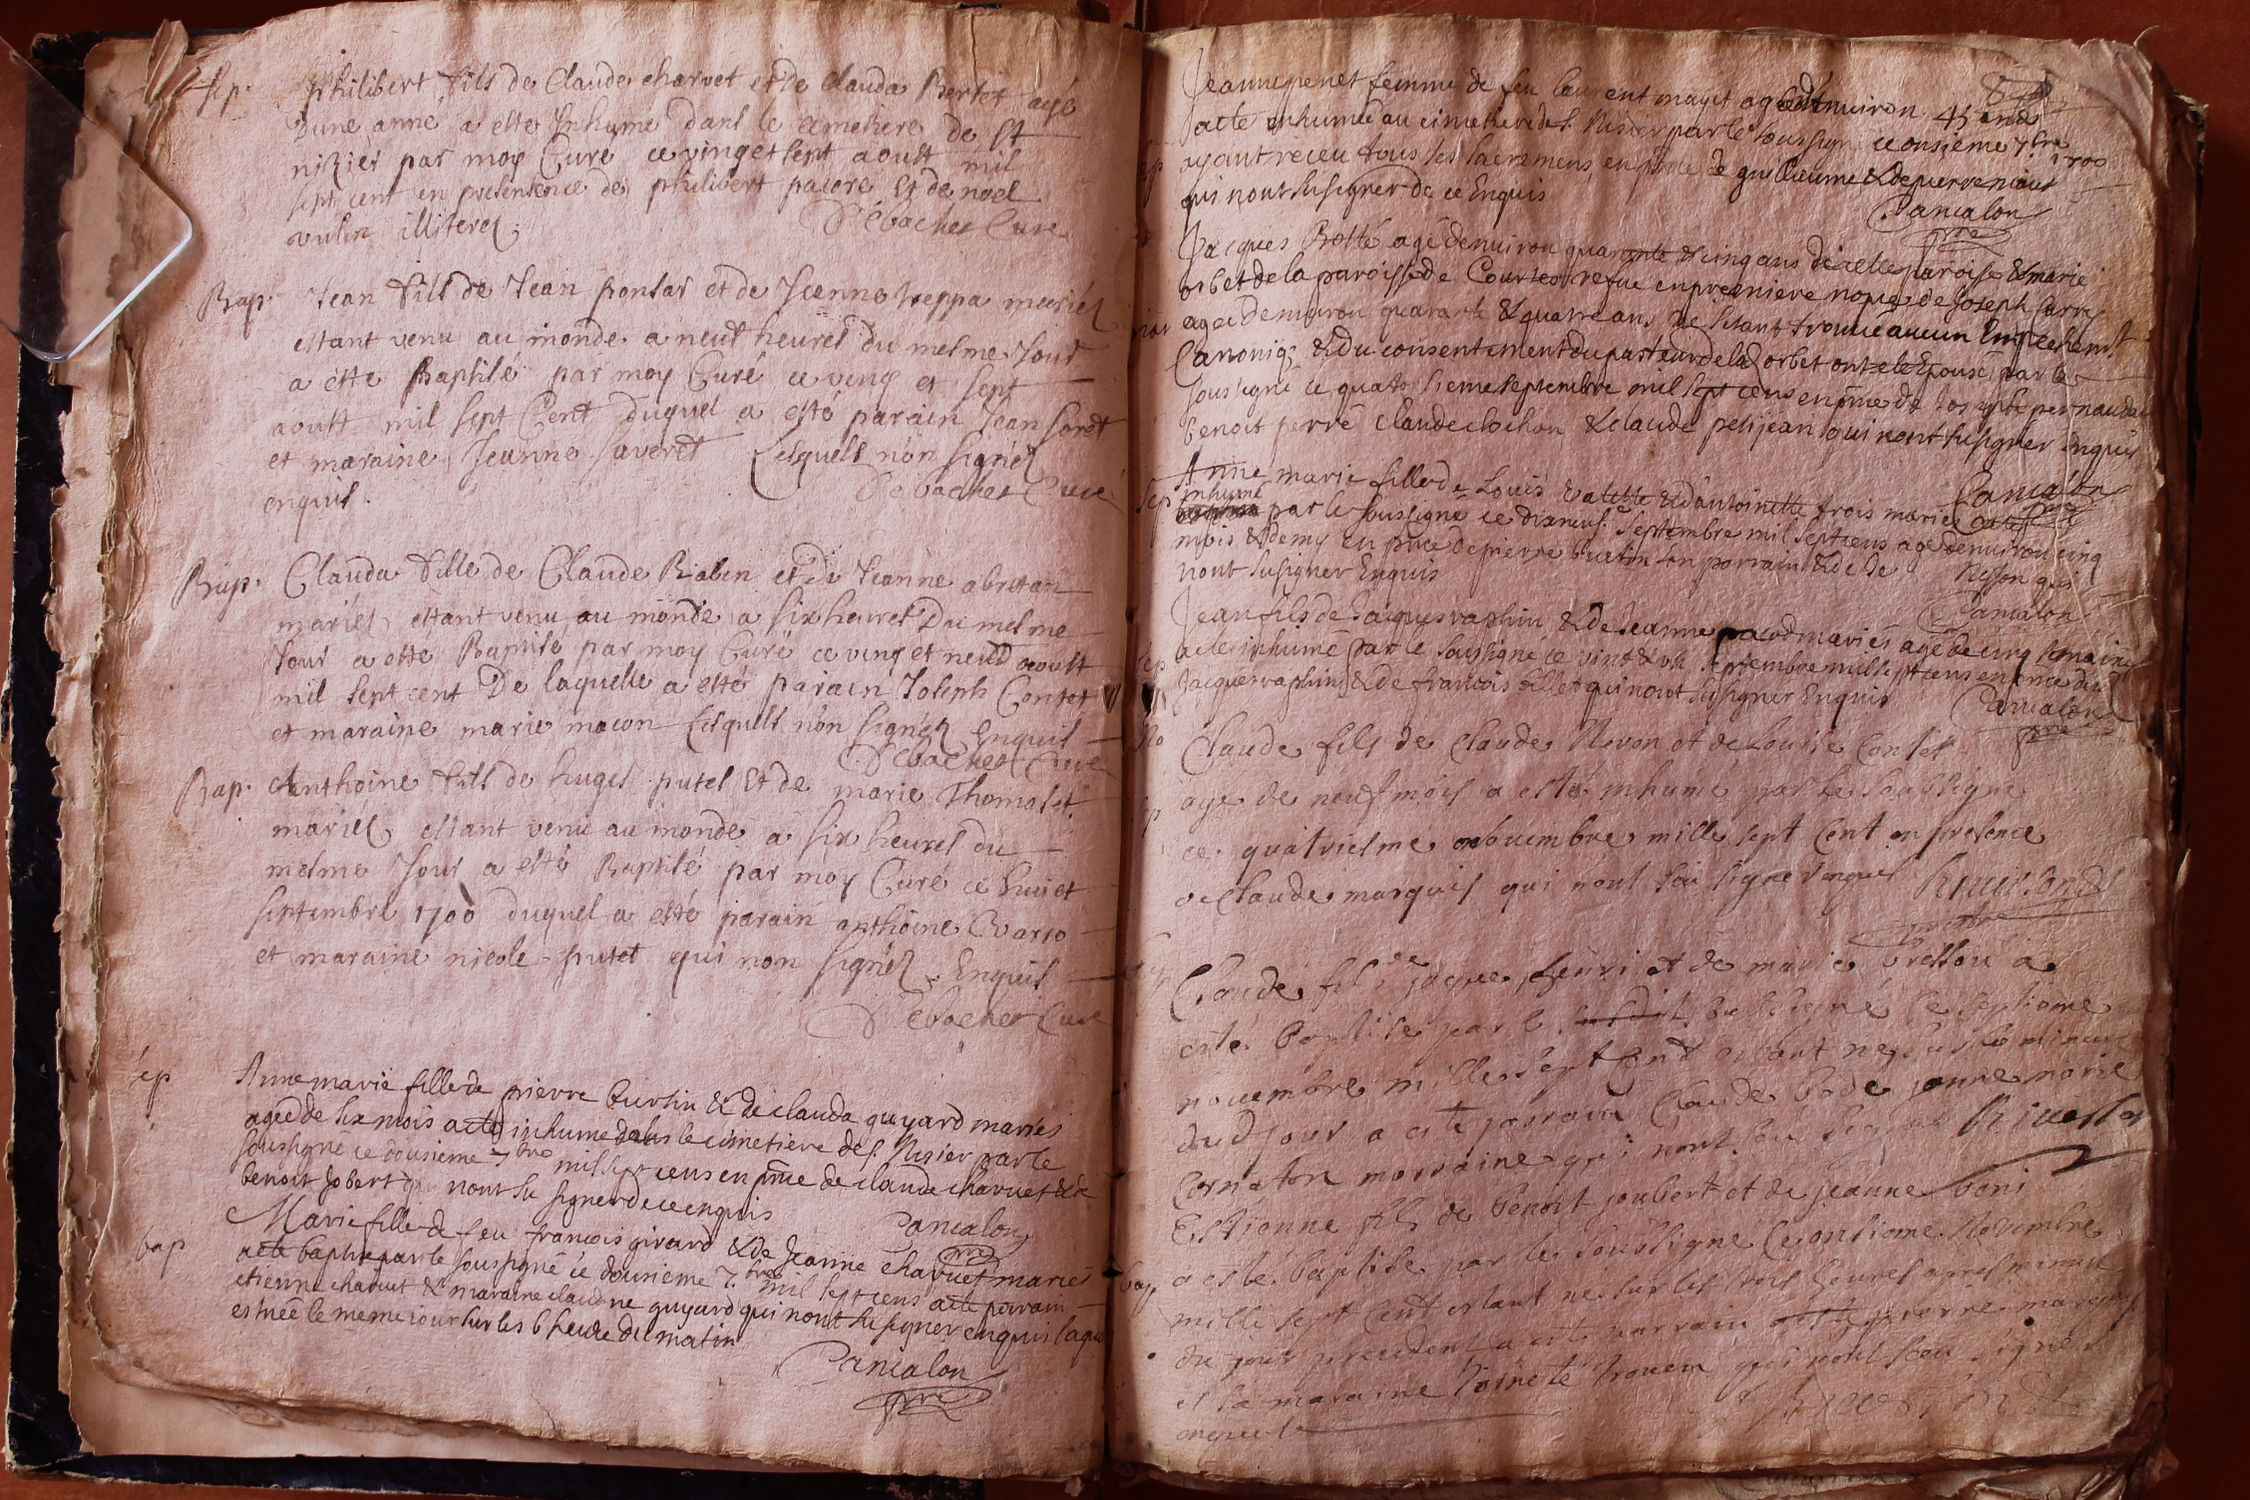 Sep. Philibert fils de Claude charvet et de Clauda Bertet agé
D'une anné a esté Inhumé dans le cimetiere de St
nizier par moy Curé ce vingt et sept aoust mil
sept cent en presentence de philibert pacore Et de noel
vulin illiterez.
Debachet Cure
Bap. Jean fils de Jean ponsar et de Jeanne Treppa mariés
estant venu au monde a neuf heures du mesme Jour
a esté Baptisé par moy Curé ce ving et sept
aoust mil sept Cent duquel a esté parain Jean
et maraine Jeanne Saveret Lesquels n'on signéz
enquis.
Debachet Curé
Bap. Clauda fille de Claude Rabin et de Jeanne
mariés estant venu au monde a six heures Du mesme
Jour a esté Baptisé par moy Curé ce ving et neuf aoust
mil sept cent De laquelle a esté parain Joseph Contet
et maraine marie macon Lesquels n'on signéz Enquis
Debachet Curé
Bap. Anthoine fils de huges putet Et de marie Thomasset
mariés estant venu au monde a six heures du
mesme Jour a esté Baptisé par moy Curé ce huict
septembre 1700 duquel a esté parain anthoine
et maraine nicole putet qui non signéz Enquis
Debachet Cure
sep Anne marie fille de pierre burtin & de clauda guyard mariés
agée de six mois a eté inhumé dans le cimetiere de s. Nisier par le
soussigné ce dousieme 7bre mil sept cens en pnce de claude charvet & de
benoit Jobert qui n'ont su signer de ce enquis
Pancalon
pre
bap Marie fille de feu francois girard & de Jeanne charvet mariés
a eté baptisé par le soussigné ce dousieme 7.bre mil sept cens a eté parain
etienne charvet & maraine claudine guyard qui n'ont su signer enquis laque
est née le meme iour sur les 6 heure du matin
Pancalon
pre
8
Jeanne penet femme de feu laurent mayet agée denuiron 45 ans
a eté inhumée au cimetiere de s. Nisier par le soussigné ce onsieme 7bre
1700
ayant receu tous les sacremens en pnce de guillieume & de pierre
qui n'ont su signer de ce Enquis
Pancalon
pre
Jacques Botté agé denuiron quarante & cinq ans de cette paroisse & marie
orbet de la paroisse de Courtes vefue en premiere nopces de Joseph Carré
mar agée denuiron quarante & quatre ans ne s'etant trouué aucun Empechemt
Canoniq; & du consentement du pasteur de la d orbet ont eté Epousé par le
soussigné ce quatorsieme septembre mil sept cens en pnce de
benoit perré claude clochon & claude petijean qui n'ont su signer Enquis
Pancalon
pre
Anne marie fille de Louis & d'antoinette frois mariés a eté
Sep inhumé par le soussigné ce dixneuf septembre mil sept cens agé denuiron cinq
mois & demy en pnce de pierre burtin son parrain & de
n'ont su signer Enquis
Pancalon
Jean fils de Jacques vaphin & de Jeanne pacod mariés agé de cinq semaines
sep a eté inhumé par le soussigné ce vint & un septembre mil sept cens en pnce du d
Jacques vaphin & de francois fillet qui n'ont su signer Enquis
Pancalon
pre
Claude fils de Claude Nevon et de Louise Contet
agé de neuf mois a esté inhumé par le soubsigné
ce quatriesme nouuembre mille sept cent en presence
de Claude marquis qui n'ont sçu signe Inquis
Claude fils de jacque fleuri et de marie a
esté baptise par le soubsigné le septieme
nouembre mille sept cent estant ne sus la minuit
dud jour a este parrain Claude bade jenne marie
Cornaton marraine qui n'ont sçu signer
Estienne fils de benoit joubert et de jeanne boni
bap a esté baptise par le soussigne le onsieme novembre
mille sept cent estant ne sur les trois heures apres minuit
du jour precedent a esté parrain pierre marquis
et la maraine toinete qui n'ont sceu signer
enquis